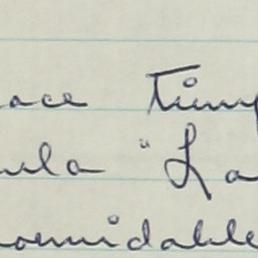 ace Tim
ula "La
omidable